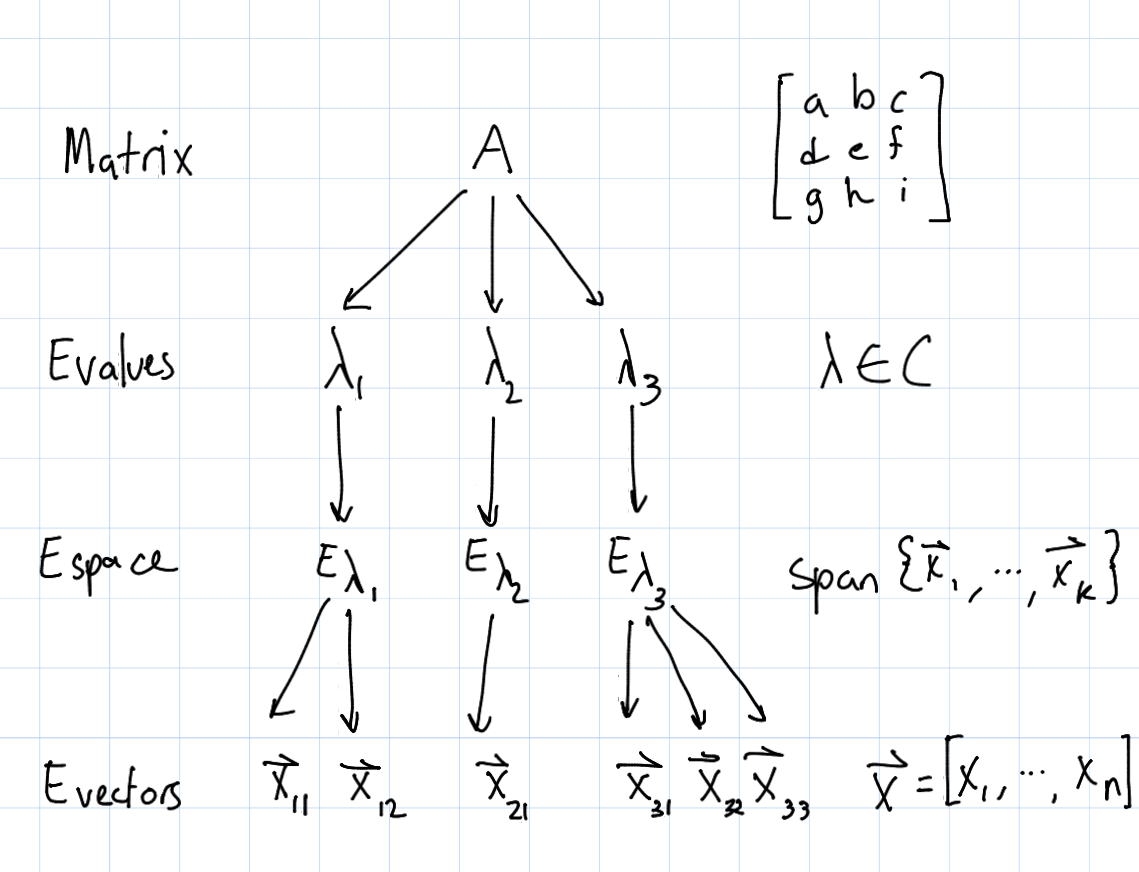 Matrix A [a b c
d e f
g h i]
Evalues λ₁ λ₂ λ₃ λ ∈ C
Espace Eλ₁ Eλ₂ Eλ₃ span {x⃗₁, ..., x⃗ₖ}
Evectors x⃗₁₁ x⃗₁₂ x⃗₂₁ x⃗₃₁ x⃗₃₂ x⃗₃₃ x⃗ = [x₁, ..., xₙ]